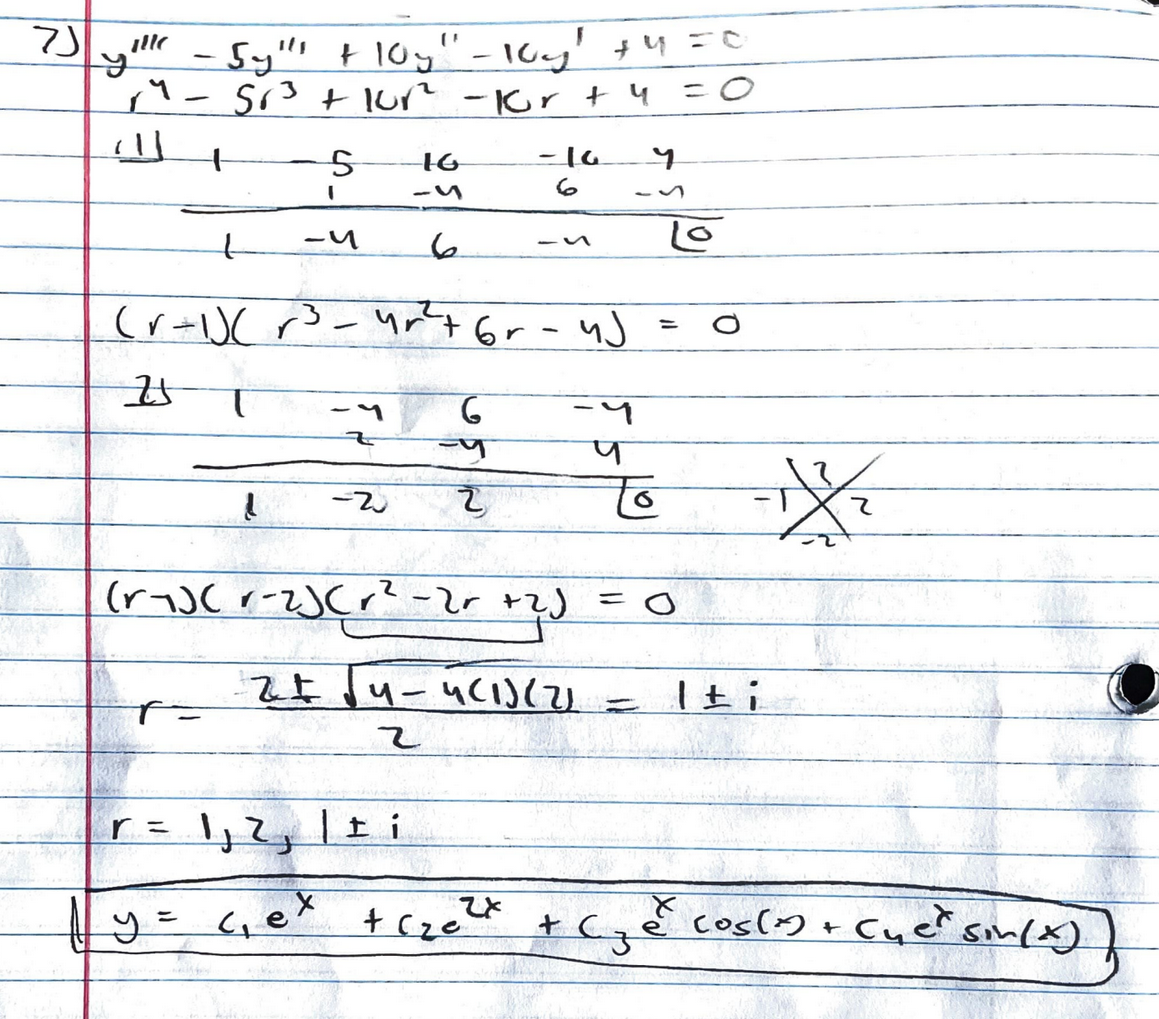 7) y'''' - 5y''' + 10y'' - 10y' + 4 = 0
r⁴ - 5r³ + 10r² - 10r + 4 = 0
1| 1 -5 10 -10 4
1 -4 6 -4
1 -4 6 -4 |0
(r-1)(r³ - 4r² + 6r - 4) = 0
2| 1 -4 6 -4
2 -4 4
1 -2 2 |0
2
-1 2
-2
(r-1)(r-2)(r² - 2r + 2) = 0
r = (2 ± √(4 - 4(1)(2)))/2 = 1 ± i
r = 1, 2, 1 ± i
y = c₁eˣ + c₂e²ˣ + c₃eˣ cos(x) + c₄eˣ sin(x)